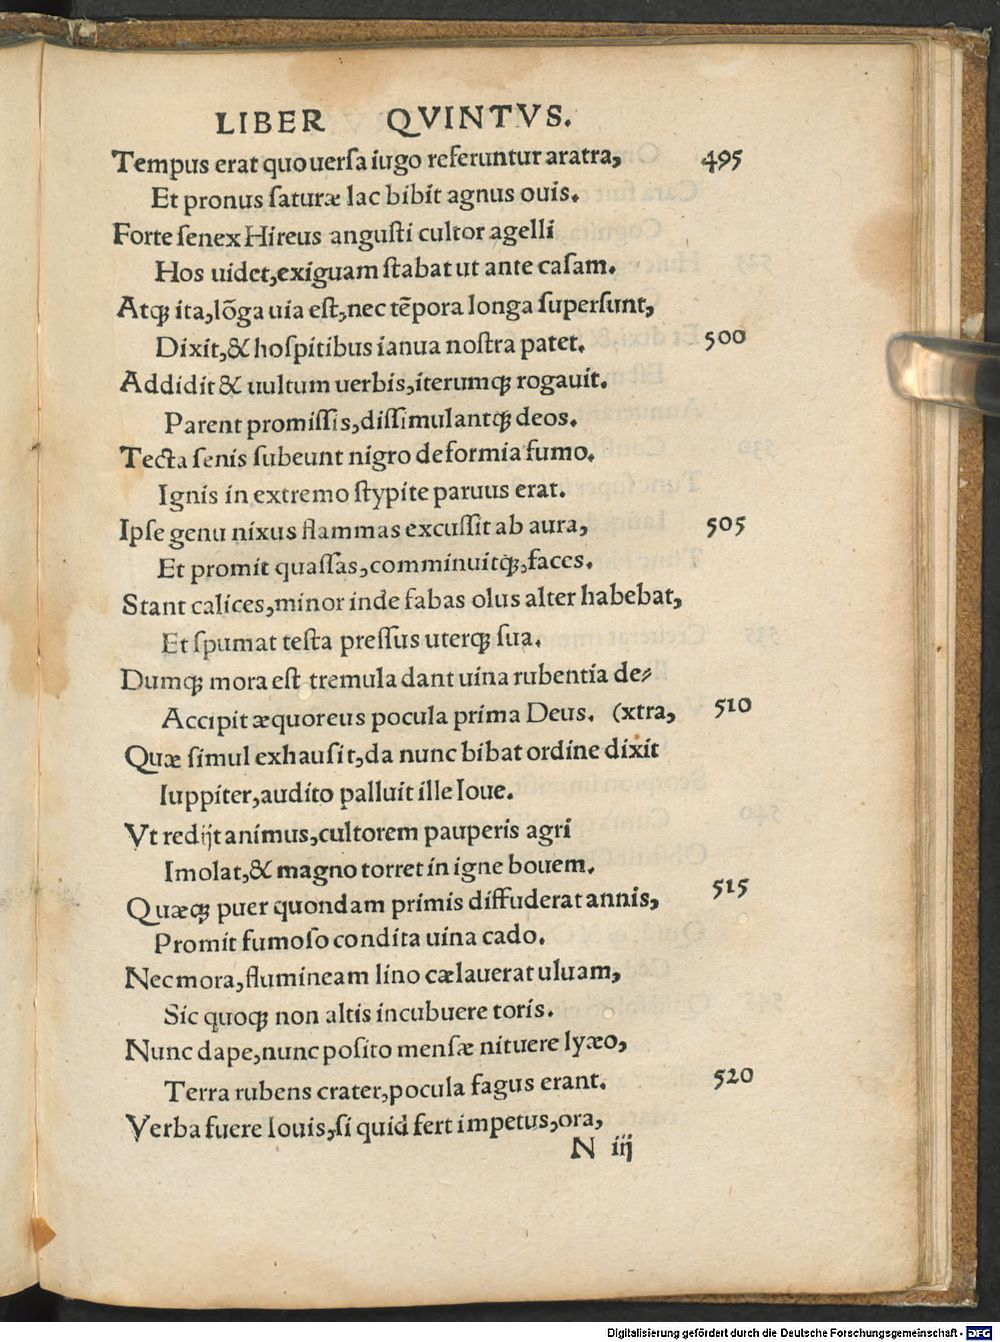 LIBER QVINTVS.
Tempus erat quo uersa iugo referuntur aratra, 495
Et pronus saturæ lac bibit agnus ouis.
Forte senex Hireus angusti cultor agelli
Hos uidet,exiguam stabat ut ante casam.
Atqꝫ ita,lõga uia est,nec tẽpora longa supersunt,
Dixit,& hospitibus ianua nostra patet. 500
Addidit & uultum uerbis,iterumqꝫ rogauit.
Parent promissis,dissimulantqꝫ deos.
Tecta senis subeunt nigro deformia fumo.
Ignis in extremo stypite paruus erat.
Ipse genu nixus flammas excussit ab aura, 505
Et promit quassas,comminuitqꝫ,faces.
Stant calices,minor inde fabas olus alter habebat,
Et spumat testa pressus uterqꝫ sua.
Dumqꝫ mora est tremula dant uina rubentia de⸗
Accipit æquoreus pocula prima Deus. (xtra, 510
Quæ simul exhausit,da nunc bibat ordine dixit
Iuppiter,audito palluit ille Ioue.
Vt redijt animus,cultorem pauperis agri
Imolat,& magno torret in igne bouem.
Quæqꝫ puer quondam primis diffuderat annis, 515
Promit fumoso condita uina cado.
Nec mora,flumineam lino cælauerat uluam,
Sic quoqꝫ non altis incubuere toris.
Nunc dape,nunc posito mensæ nituere lyæo,
Terra rubens crater,pocula fagus erant. 520
Verba fuere Iouis,si quid fert impetus,ora,
N iij
Digitalisierung gefördert durch die Deutsche Forschungsgemeinschaft - DFG